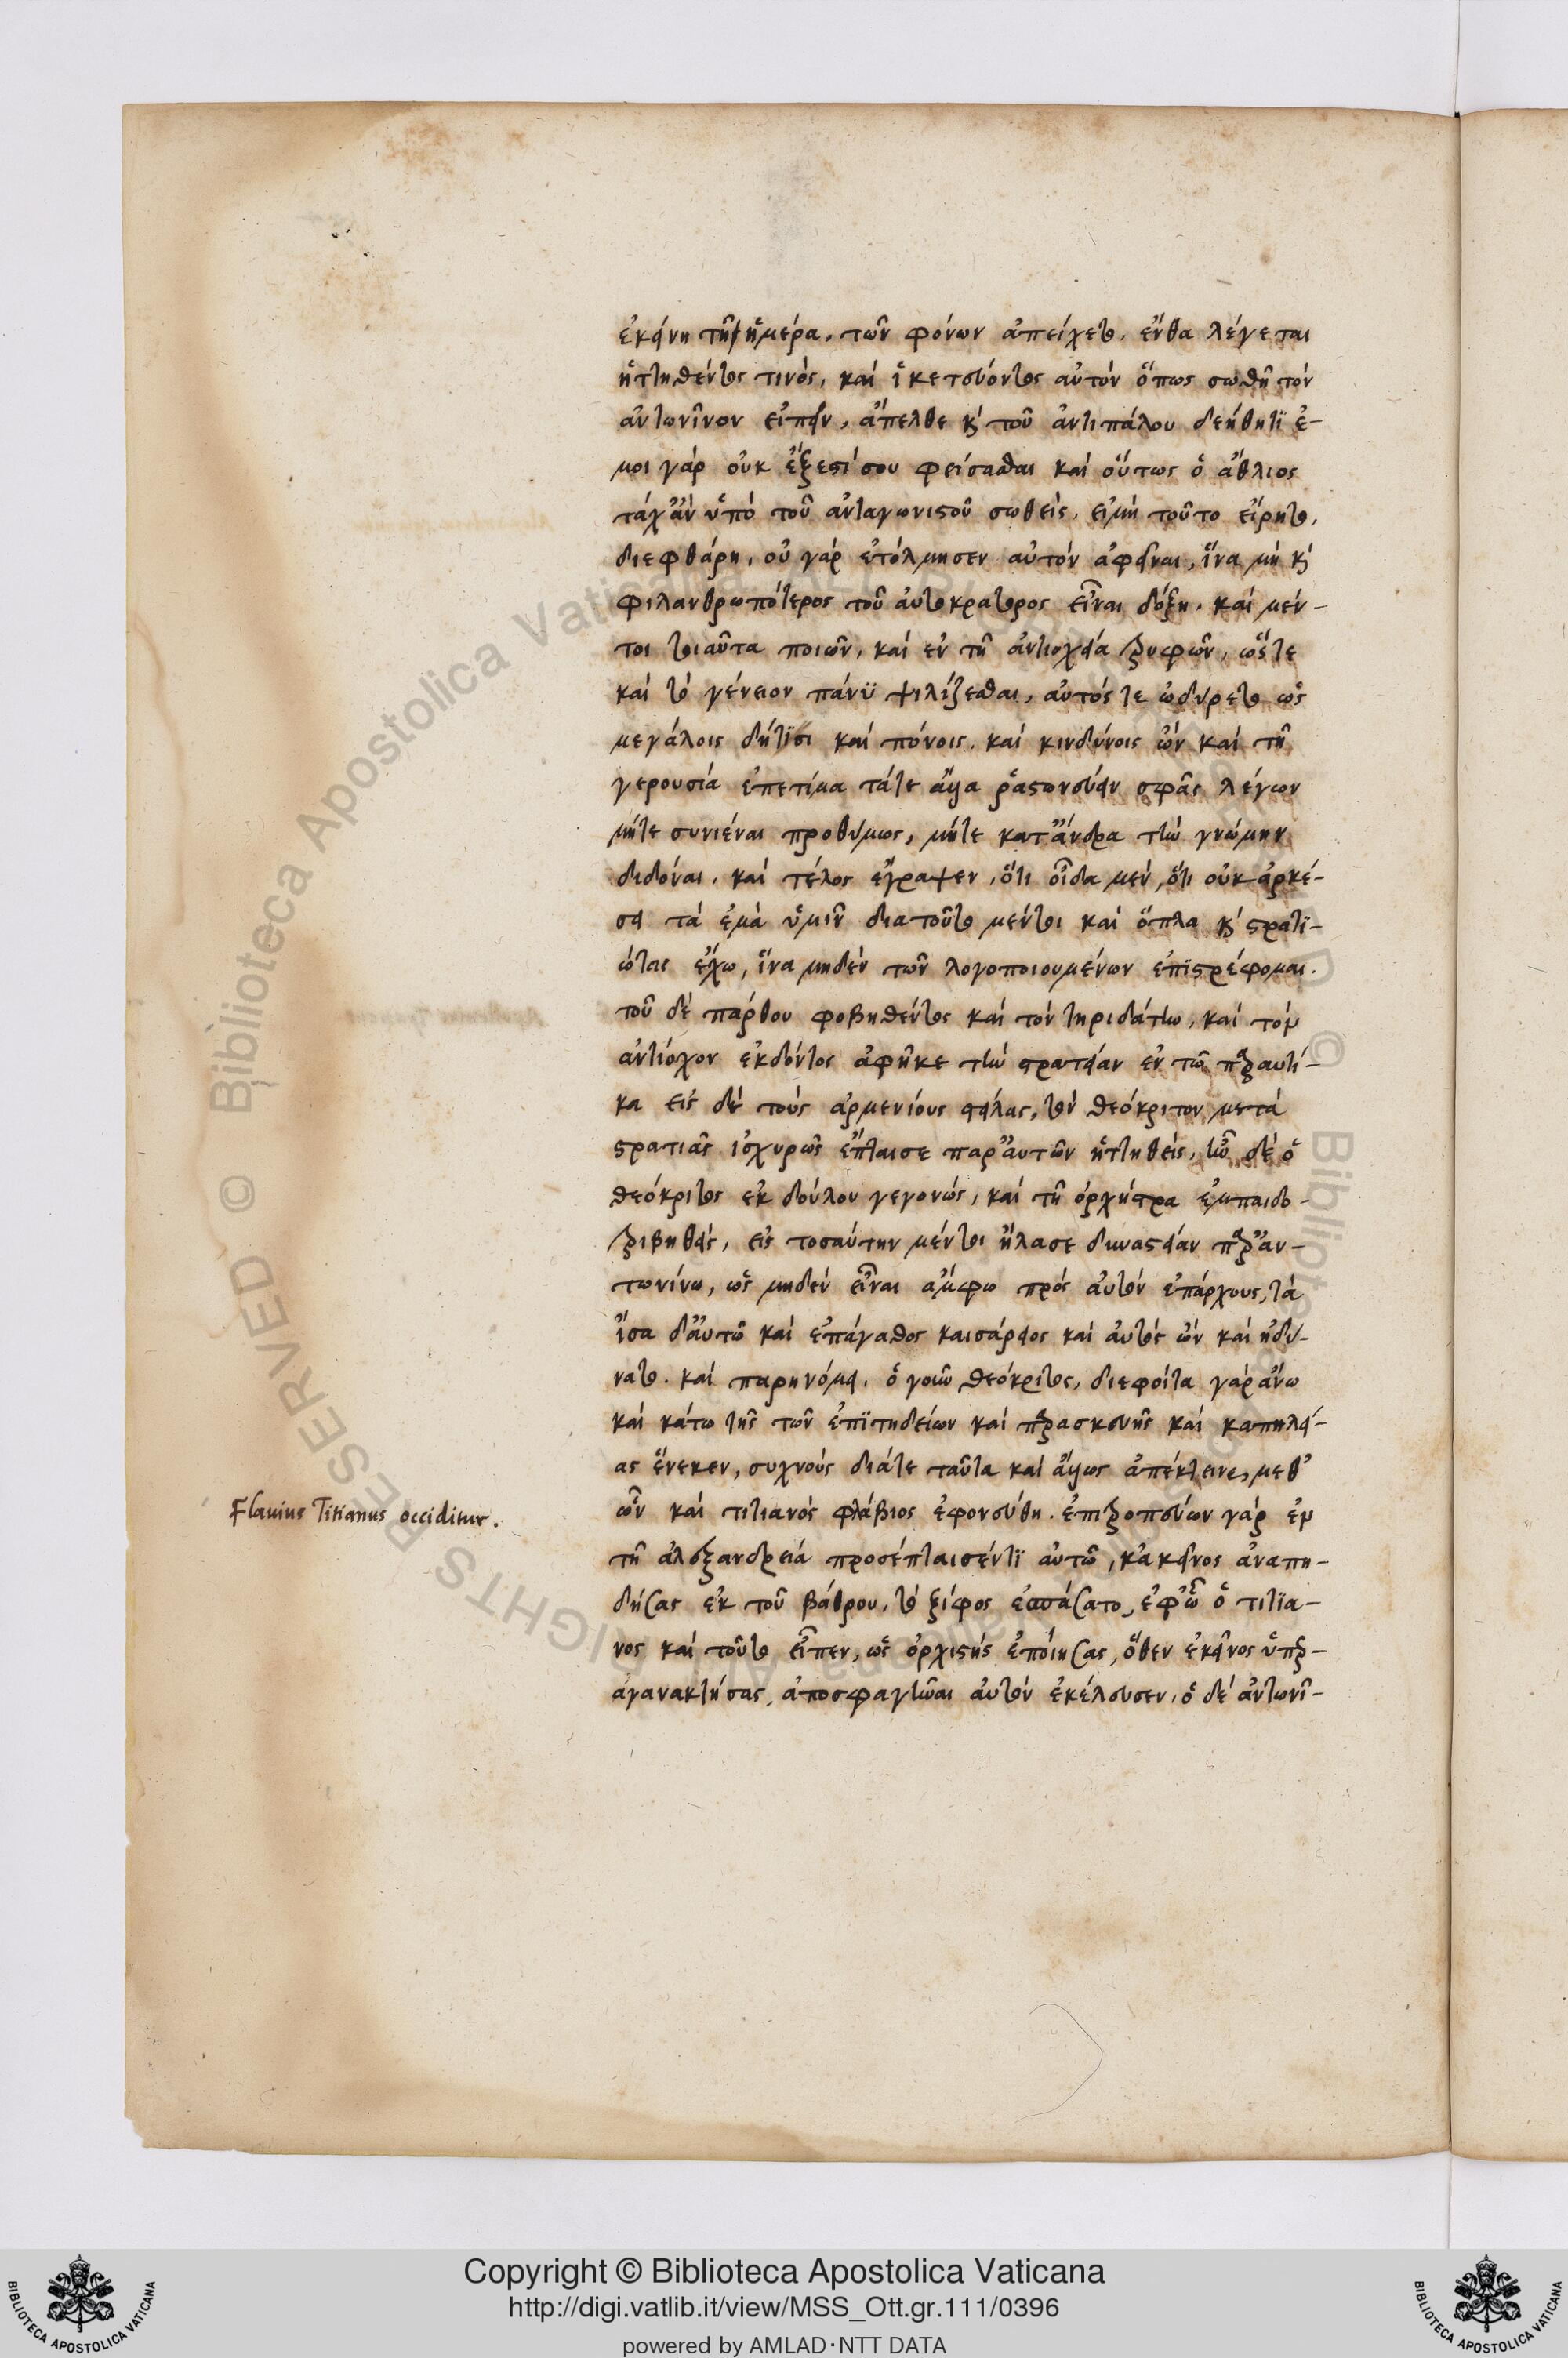 ἐκείνη τῇ ἡμέρα. τῶν φόνων ἀπείχετο. ἔνθα λέγεται
ἡττηθέντος τινὸς, καὶ ἱκετεύοντος αὐτὸν ὅπως σωθῆ τὸν
ἀντωνῖνον εἰπεῖν, ἄπελθε κ' τοῦ ἀντιπάλου δεήθητϊ ἐ-
μοι γὰρ οὐκ ἔξεστί σου φείσασθαι καὶ οὕτως ὁ ἄθλιος
τάχ' ἂν ὑπὸ τοῦ ἀνταγωνιστοῦ σωθεὶς. εἰμὴ τοῦτο εἴρητο,
διεφθάρη, οὐ γὰρ ἐτόλμησεν αὐτὸν ἀφεῖναι, ἵνα μὴ κ'
φιλανθρωπότερος τοῦ ἀυτοκράτορος εἶναι δόξη. καὶ μέν-
τοι τοιαῦτα ποιῶν, καὶ ἐν τῆ ἀντιοχεία τρυφῶν, ὥστε
καὶ τὸ γένειον πάνϋ ψιλίζεσθαι, αὐτός τε ὠδύρετο ὡς
μεγάλοις δήτϊσι καὶ πόνοις. καὶ κινδύνοις ὢν καὶ τῆ
γερουσία ἐπετίμα τάτε ἄλλα ῥαστωνεύειν σφᾶς λέγων
μήτε συνιέναι προθύμως, μήτε κατ' ἄνδρα τὴν γνώμην
διδόναι. καὶ τέλος ἔγραψεν, ὅτι οἶδα μὲν, ὅτι οὐκ ἀρκέ-
σει τὰ ἐμὰ ὑμῖν διατοῦτο μέντοι καὶ ὅπλα κ' στρατϊ-
ώτας ἔχω, ἵνα μηδὲν τῶν λογοποιουμένων ἐπϊστρέφομαι.
τοῦ δὲ πάρθου φοβηθέντος καὶ τὸν τηριδάτην, καὶ τὸν
ἀντιόχον ἐκδόντος ἀφῆκε τὴν στρατείαν ἐν τῶ παραυτί-
κα εἰς δὲ τοὺς ἀρμενίους στείλας, τὸν θεόκριτον μετὰ
στρατιᾶς ἰσχυρῶς ἔπταισε παρ' αυτῶν ἡττηθεὶς, ἦν δὲ ὁ
θεόκριτος ἐκ δούλου γεγονὼς, καὶ τῆ ὀρχήστρα ἐμπαιδο-
τριβηθεὶς, εἰς τοσαύτην μέντοι ἤλασε δυναστείαν παρ' ἀν-
τωνίνω, ὡς μηδὲν εἶναι ἄμφω πρὸς ἀυτὸν ἐπάρχους, τὰ
ἴσα δ' αὐτῶ καὶ ἐπάγαθος καισάρειος καὶ ἀυτὸς ὢν καὶ ἠδύ-
νατο. καὶ παρηνόμει. ὁ γοῦν θεόκριτος, διεφοίτα γὰρ ἄνω
καὶ κάτω τῆς τῶν ἐπϊτηδείων καὶ παρασκευῆς καὶ καπηλεί-
ας ἕνεκεν, συχνοὺς διάτε ταῦτα καὶ ἄλλως ἀπέκτεινε, μεθ'
ὧν καὶ τιτιανὸς φλάβιος ἐφονεύθη. ἐπιτροπεύων γὰρ ἐν
τῆ ἀλεξανδρειά προσέπταισέντϊ αὐτῶ, κἀκεῖνος ἀναπη-
δήσας ἐκ τοῦ βάθρου, τὸ ξίφος ἐσπάσατο, ἐφ' ὧ ὁ τιτϊα-
νος καὶ τοῦτο εἶπεν, ὡς ὀρχιστὴς ἐποίησας, ὅθεν ἐκεῖνος ὑπερ-
αγανακτήσας, ἀποσφαγῆναι ἀυτὸν ἐκέλευσεν, ὁ δὲ ἀντωνῖ-
Flauius Titianus occiditur.
Copyright © Biblioteca Apostolica Vaticana
http://digi.vatlib.it/view/MSS_Ott.gr.111/0396
powered by AMLAD·NTT DATA
BIBLIOTECA APOSTOLICA VATICANA
BIBLIOTECA APOSTOLICA VATICANA